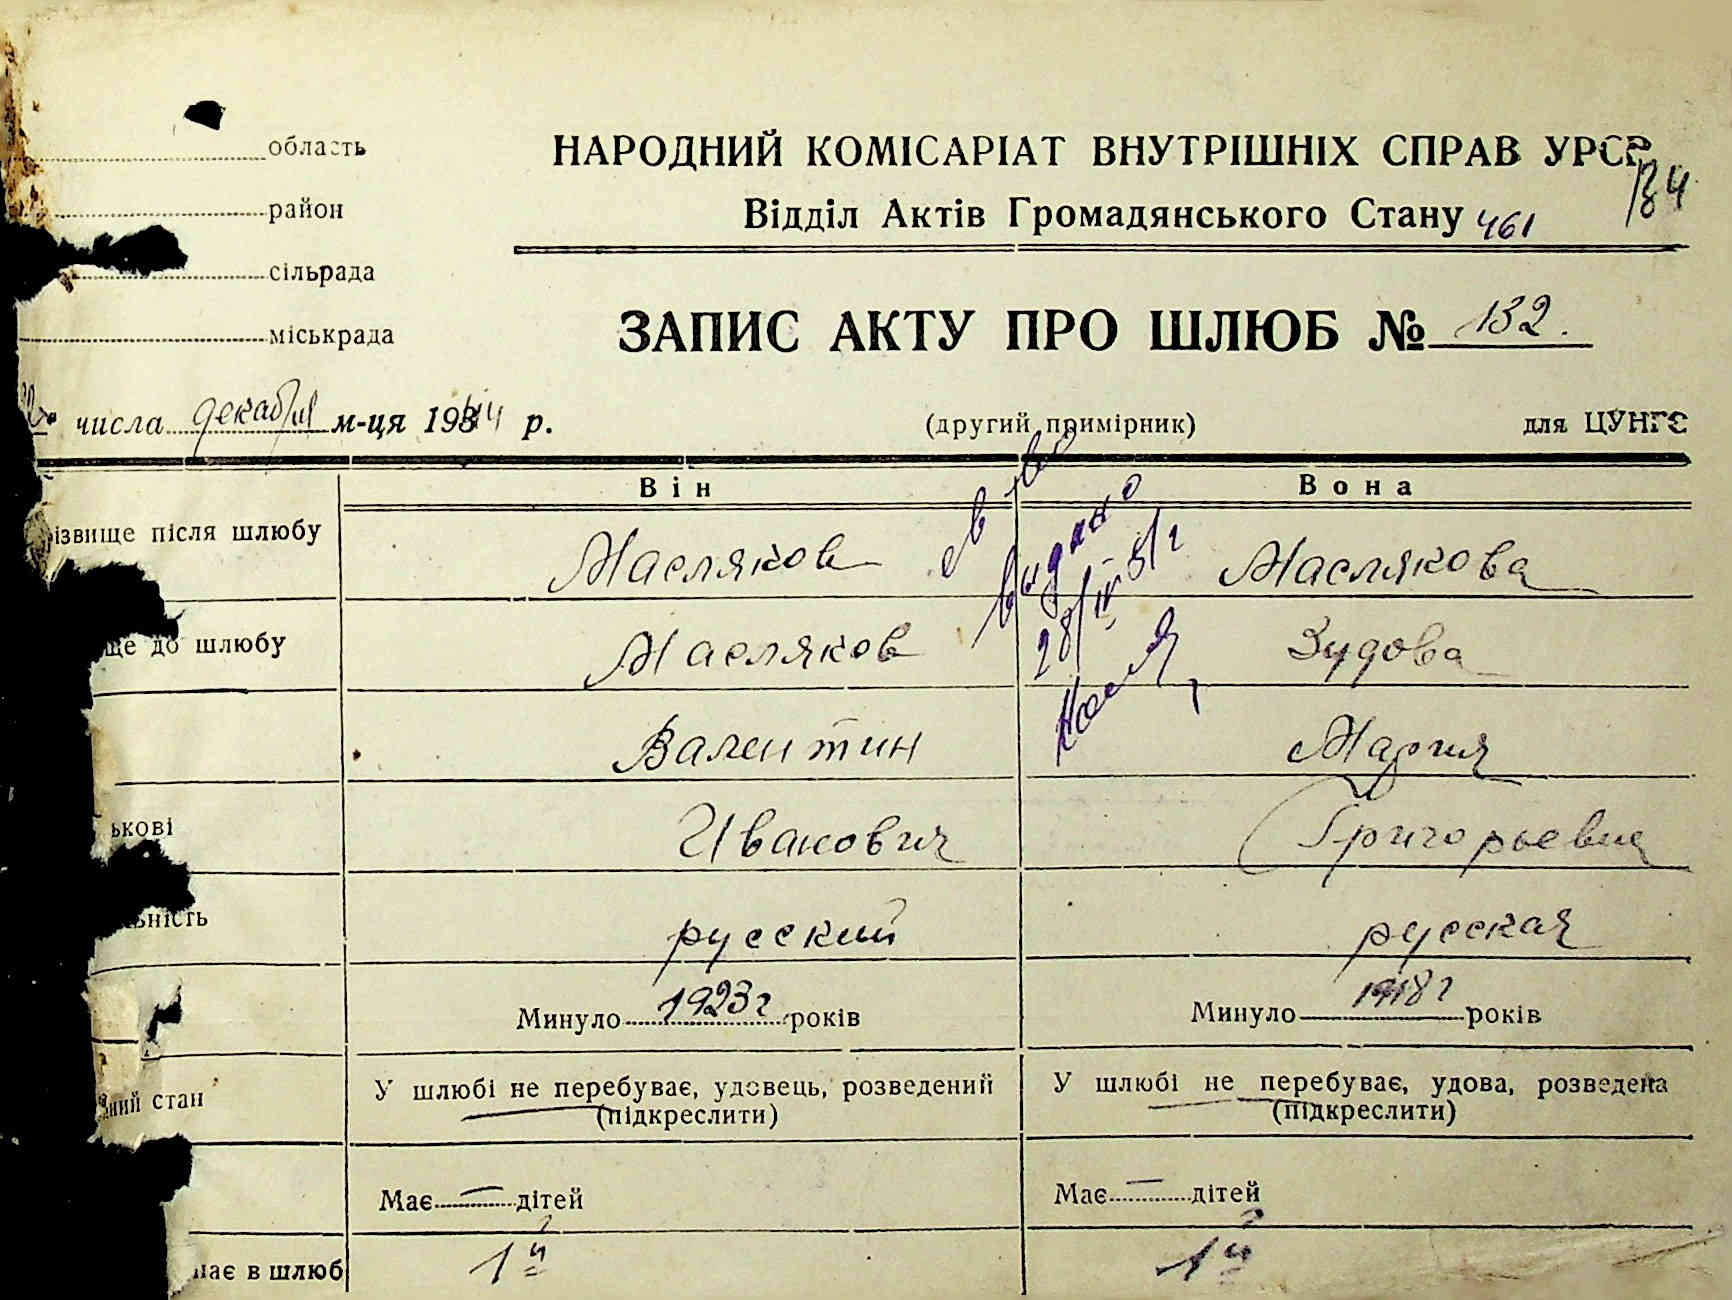 область
НАРОДНИЙ КОМІСАРІАТ ВНУТРІШНІХ СПРАВ УРСР
184
район
Відділ Актів Громадянського Стану 461
сільрада
ЗАПИС АКТУ ПРО ШЛЮБ № 132.
міськрада
числа декабря м-ця 1944 р.
(другий примірник)
для ЦУНГО
Він
Вона
ізвище після шлюбу
Масляков
Маслякова
выдано
28/IV 81г
ще до шлюбу
Масляков
Зудова
Валентин
Мария
ькові
Иванович
Григорьевна
ьність
русский
русская
Минуло 1923г років
Минуло 1918г років
ний стан
У шлюбі не перебуває, удовець, розведений
(підкреслити)
У шлюбі не перебуває, удова, розведена
(підкреслити)
Має — дітей
Має — дітей
пає в шлюб
1й
1й